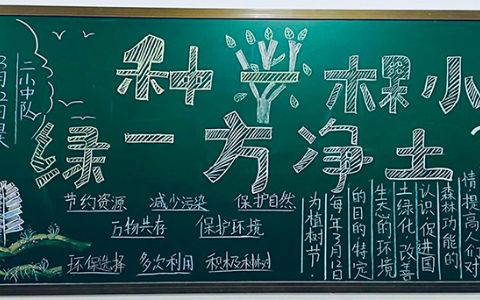 二小中队
种一棵小
绿一方净土
节约资源 减少污染 保护自然
万物共存 保护环境
环保选择 多次利用
情提高人们对
森林功能的
认识促进国
土绿化改善
生态的环境
的目的特定
每年3月12日
为植树节.